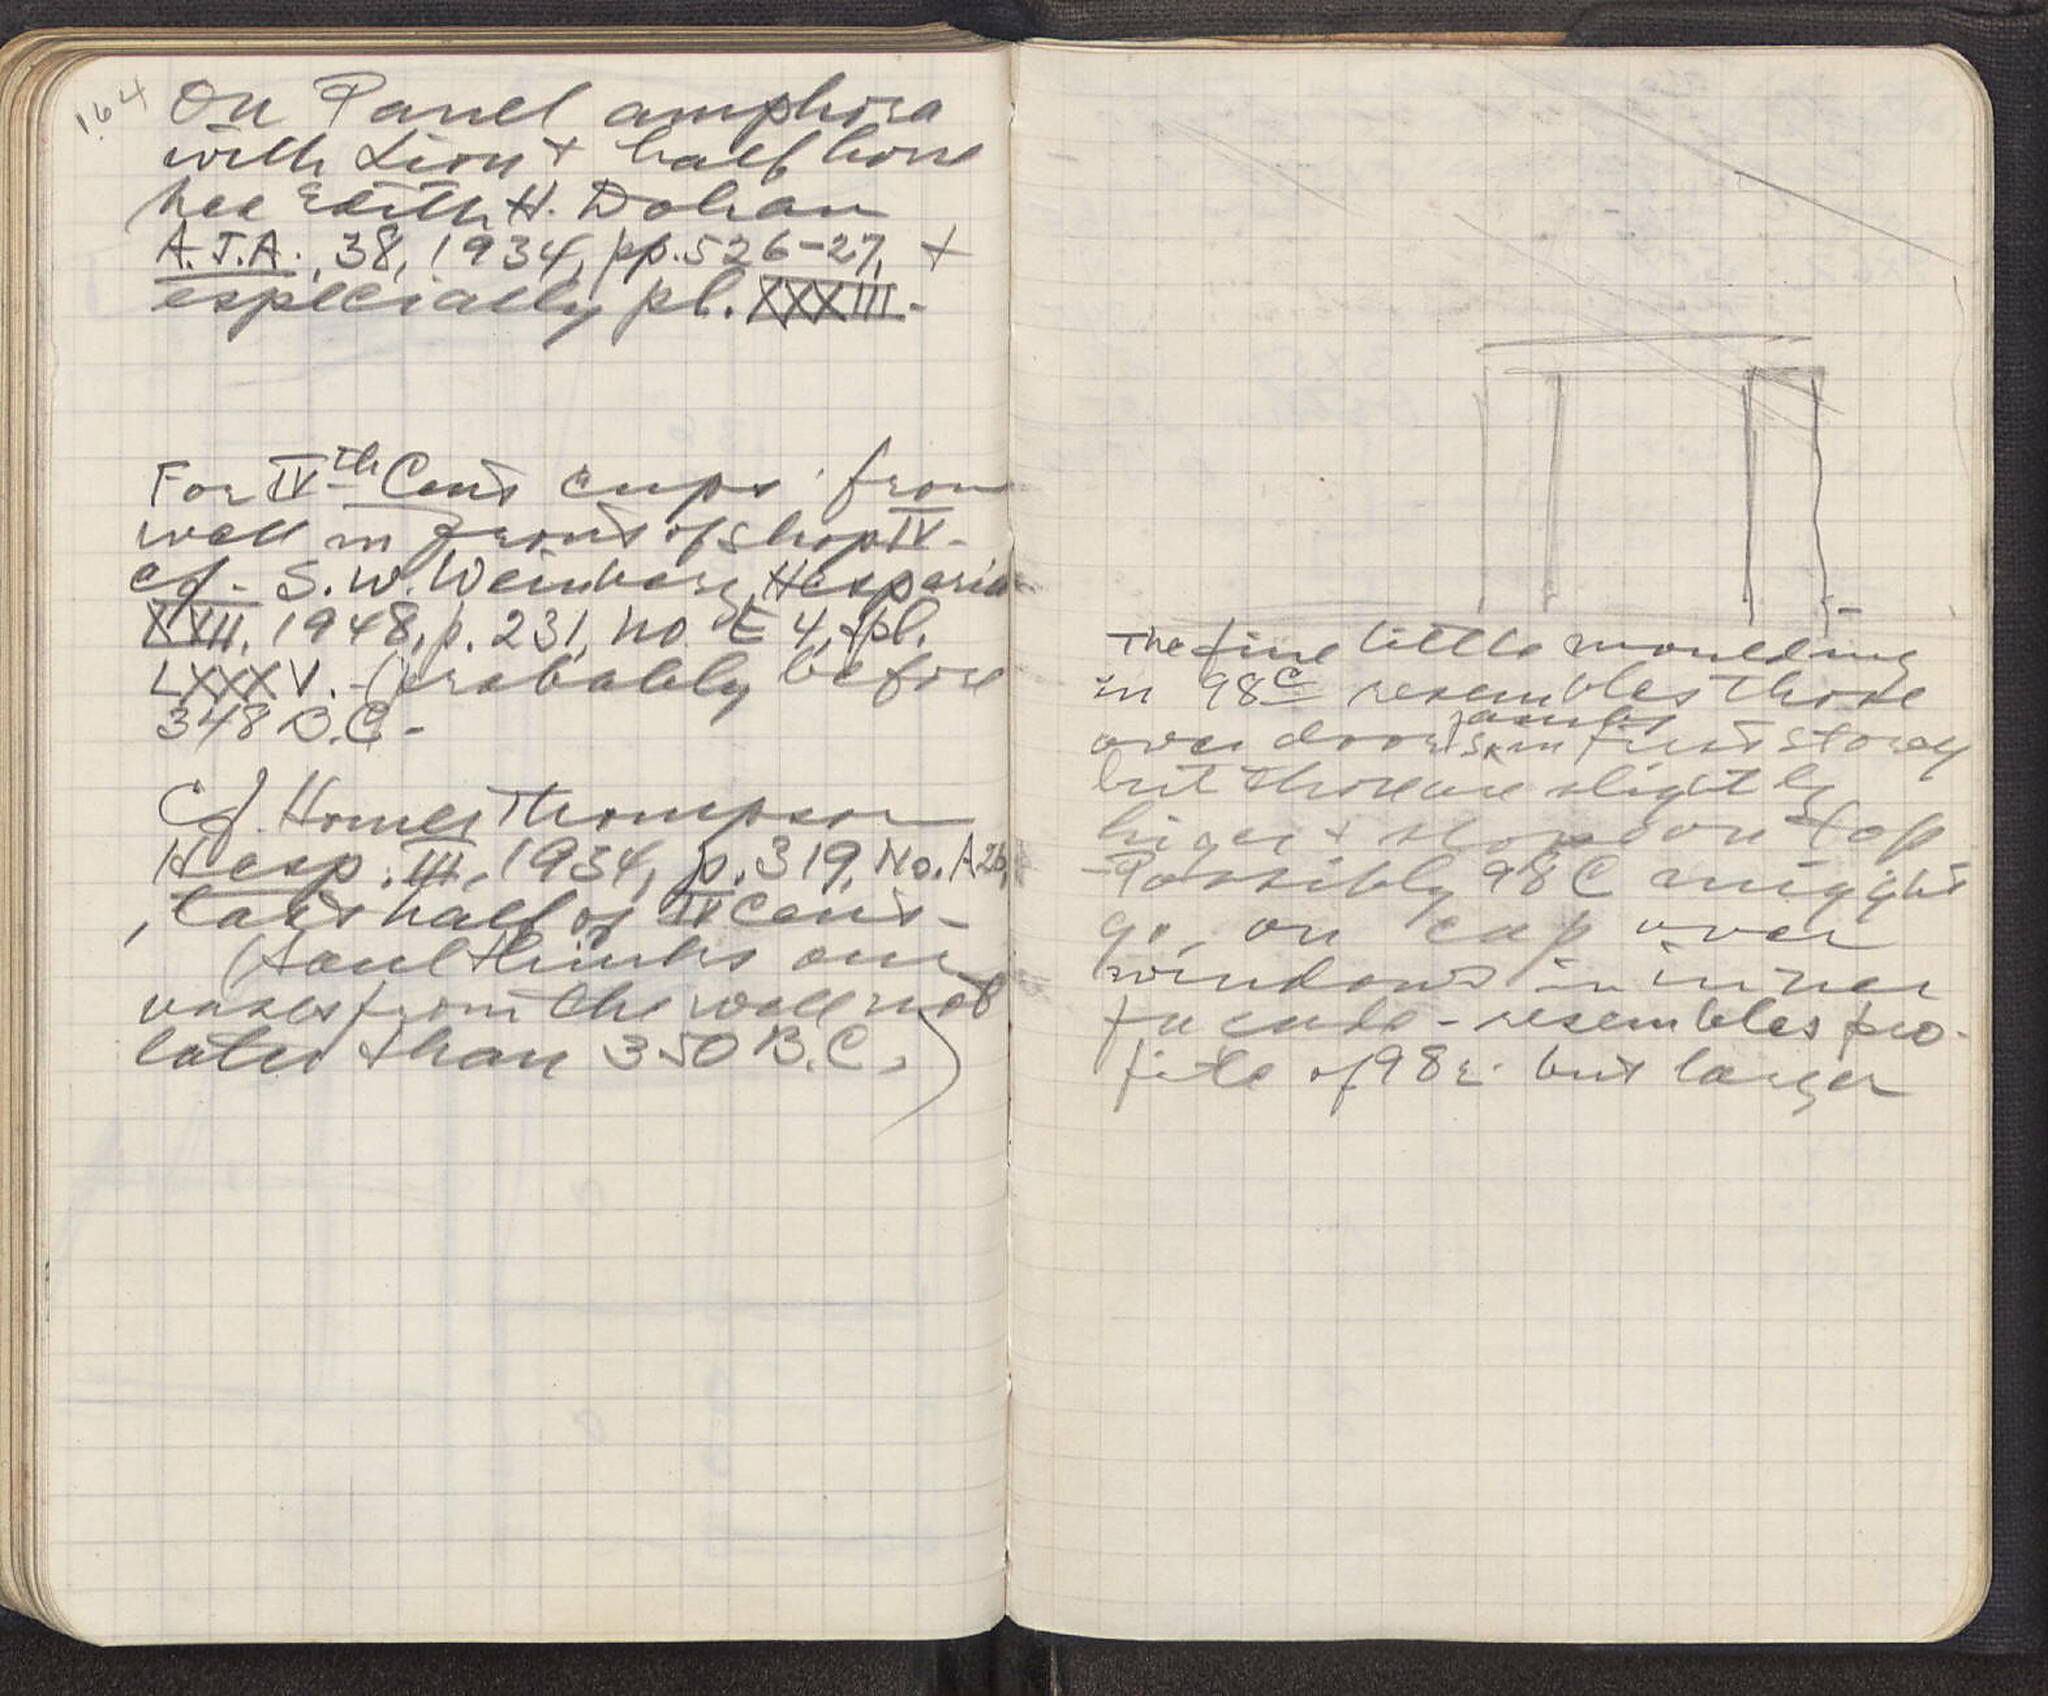 164
On Panel amphora
with Lion + half horse
see Edith H. Dohan
A.J.A., 38, 1934, pp. 526-27, +
especially pl. XXXIII.
For IVth Cent cups from
well in front of shop IV-
cf. S. W. Weinberg, Hesperia
XVII, 1948, p. 231, no E 4, + pl.
LXXXV. - (probably before
348 B.C.-
Cf. Homer Thompson
Hesp. III, 1934, p. 319, No. A26,
, last half of IV cent-
(Saul thinks our
vases from the well not
later than 350 B.C.)
The fine little moulding
in 98c resembles those
jambs
over doors in first storey
but those are slightly
higer + slope on top
-Possibly 98C might
go, on cap over
windows in inner
facade - resembles pro-
file of 98 but larger